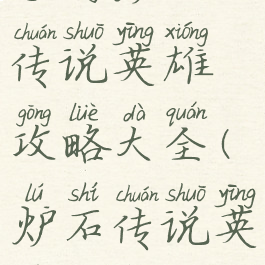 chuán shuō yīng xióng
传说英雄
gōng lüè dà quán
攻略大全(
lú shí chuán shuō yīng
炉石传说英